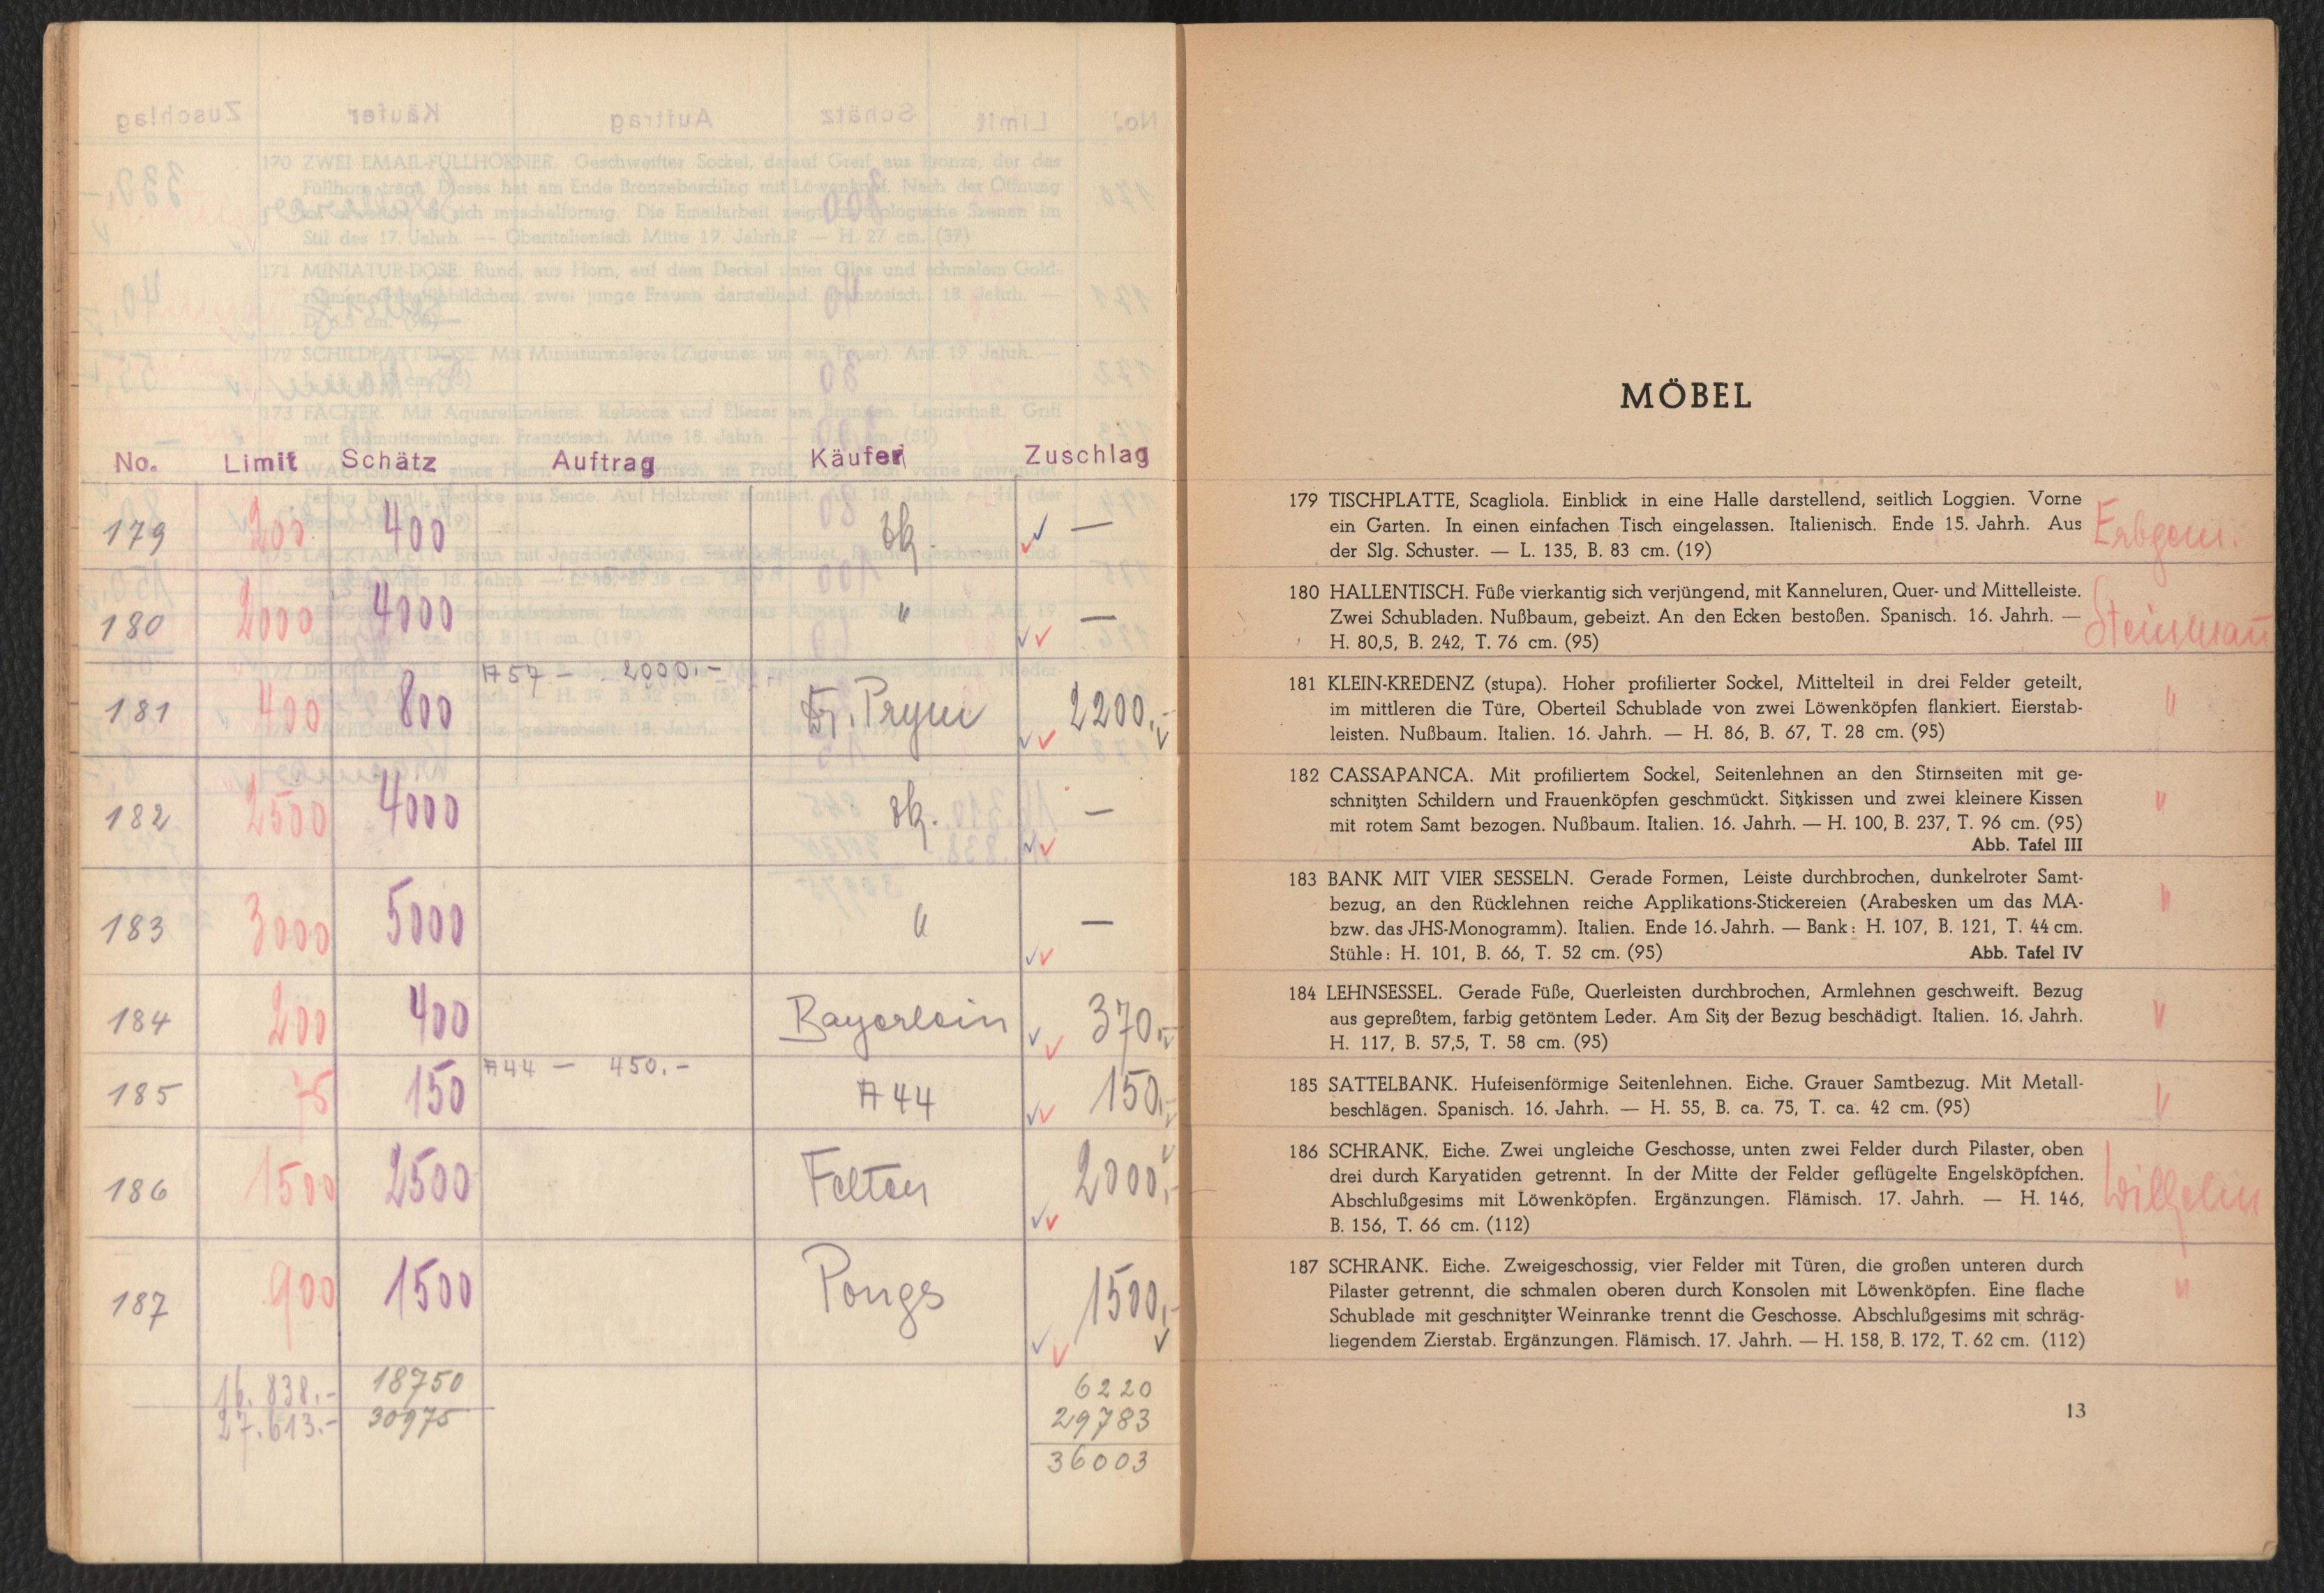 No. Limit Schätz Auftrag Käufer Zuschlag
179 200 400 —
180 2000 4000 " —
A57 — 2000.-
181 400 800 Fr. Prym 2200,-
182 2500 4000 —
183 3000 5000 " —
184 200 400 Bayerlein 370,-
A44 — 450.-
185 75 150 A44 150,-
186 1500 2500 Felten 2000,-
187 900 1500 Pongs 1500,-
16.838.- 18750 6220
27.613.- 30975 29783
36003
MÖBEL
179 TISCHPLATTE, Scagliola. Einblick in eine Halle darstellend, seitlich Loggien. Vorne
ein Garten. In einen einfachen Tisch eingelassen. Italienisch. Ende 15. Jahrh. Aus
der Slg. Schuster. — L. 135, B. 83 cm. (19)
Erbgem.
180 HALLENTISCH. Füße vierkantig sich verjüngend, mit Kanneluren, Quer- und Mittelleiste.
Zwei Schubladen. Nußbaum, gebeizt. An den Ecken bestoßen. Spanisch. 16. Jahrh. —
H. 80,5, B. 242, T. 76 cm. (95)
Steinmann
181 KLEIN-KREDENZ (stupa). Hoher profilierter Sockel, Mittelteil in drei Felder geteilt,
im mittleren die Türe, Oberteil Schublade von zwei Löwenköpfen flankiert. Eierstab-
leisten. Nußbaum. Italien. 16. Jahrh. — H. 86, B. 67, T. 28 cm. (95)
"
182 CASSAPANCA. Mit profiliertem Sockel, Seitenlehnen an den Stirnseiten mit ge-
schnitzten Schildern und Frauenköpfen geschmückt. Sitzkissen und zwei kleinere Kissen
mit rotem Samt bezogen. Nußbaum. Italien. 16. Jahrh. — H. 100, B. 237, T. 96 cm. (95)
Abb. Tafel III
"
183 BANK MIT VIER SESSELN. Gerade Formen, Leiste durchbrochen, dunkelroter Samt-
bezug, an den Rücklehnen reiche Applikations-Stickereien (Arabesken um das MA-
bzw. das JHS-Monogramm). Italien. Ende 16. Jahrh. — Bank: H. 107, B. 121, T. 44 cm.
Stühle: H. 101, B. 66, T. 52 cm. (95) Abb. Tafel IV
"
184 LEHNSESSEL. Gerade Füße, Querleisten durchbrochen, Armlehnen geschweift. Bezug
aus gepreßtem, farbig getöntem Leder. Am Sitz der Bezug beschädigt. Italien. 16. Jahrh.
H. 117, B. 57,5, T. 58 cm. (95)
"
185 SATTELBANK. Hufeisenförmige Seitenlehnen. Eiche. Grauer Samtbezug. Mit Metall-
beschlägen. Spanisch. 16. Jahrh. — H. 55, B. ca. 75, T. ca. 42 cm. (95)
"
186 SCHRANK. Eiche. Zwei ungleiche Geschosse, unten zwei Felder durch Pilaster, oben
drei durch Karyatiden getrennt. In der Mitte der Felder geflügelte Engelsköpfchen.
Abschlußgesims mit Löwenköpfen. Ergänzungen. Flämisch. 17. Jahrh. — H. 146,
B. 156, T. 66 cm. (112)
Wilhelm
187 SCHRANK. Eiche. Zweigeschossig, vier Felder mit Türen, die großen unteren durch
Pilaster getrennt, die schmalen oberen durch Konsolen mit Löwenköpfen. Eine flache
Schublade mit geschnitzter Weinranke trennt die Geschosse. Abschlußgesims mit schräg-
liegendem Zierstab. Ergänzungen. Flämisch. 17. Jahrh. — H. 158, B. 172, T. 62 cm. (112)
"
13